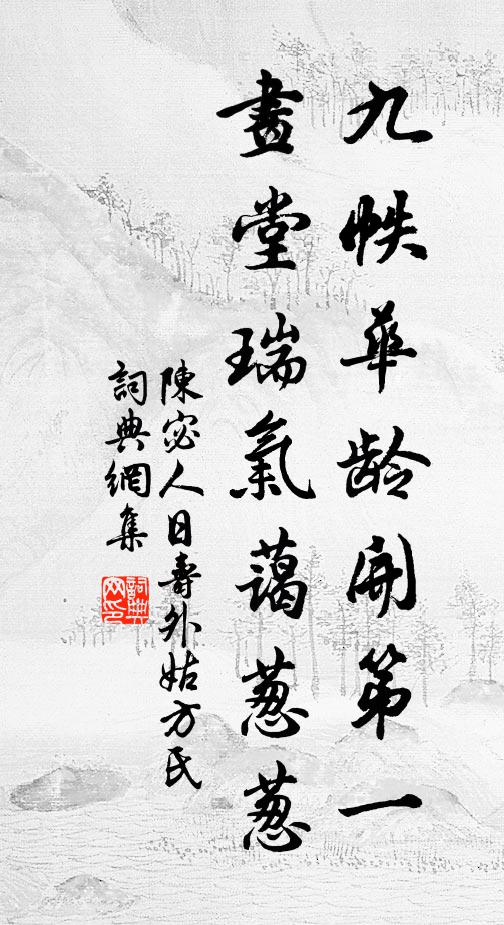 九帙華龄開第一
畫堂瑞氣藹葱葱
陳宓人日壽外姑方氏
詞典網集